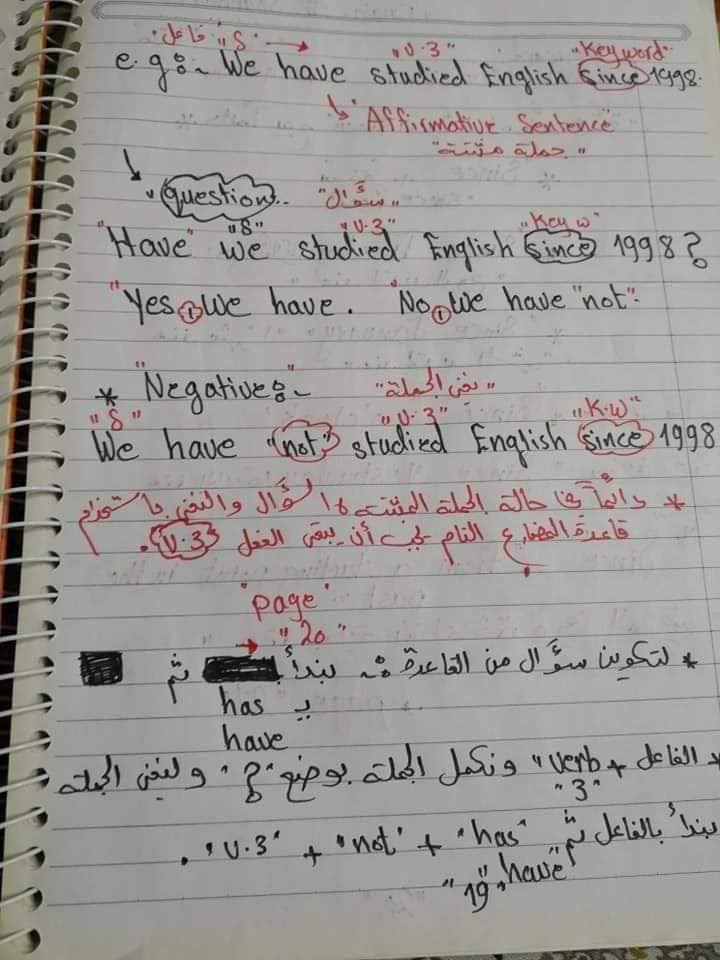 "فاعل" "S" → "V.3" "Key word"
e.g:- We have studied English since 1998.
"Affirmative Sentence"
"جملة مثبتة"
"question".. "سؤال"
"S" "V.3" "Key w"
"Have" we studied English since 1998?
"Yes, we have. No, we have "not".
* "Negative":- "نفي الجملة"
"S" "V.3" "K.W"
We have "not" studied English since 1998
* دائماً في حالة الجملة المثبتة، السؤال والنفي باستخدام
قاعدة المضارع التام يجب أن يبقى الفعل "V.3".
"page"
→ "20"
* لتكوين سؤال من القاعدة:- نبدأ ثم
has بـ
have
* الفاعل + verb" ونكمل الجملة بوضع "?" ولنفي الجملة
"3"
نبدأ بالفاعل ثم "has" + "not" + "V.3".
have"
"19"